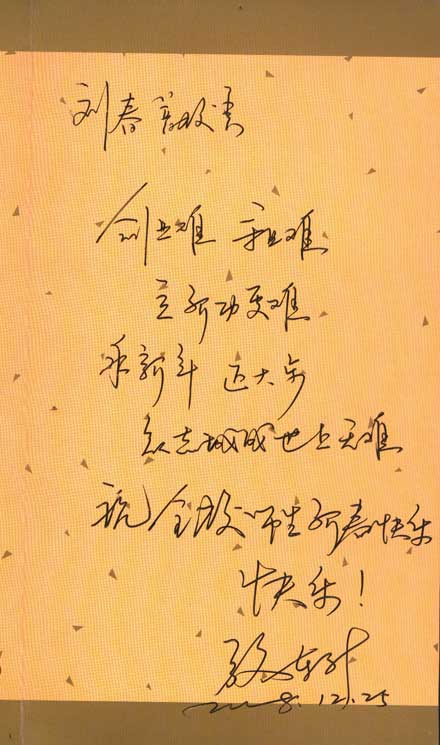 刘春校长
创业难 守业难
立新功更难
新年 迈大步
众志城成世上无难
祝全校师生新春快乐
快乐！
2008.12.25